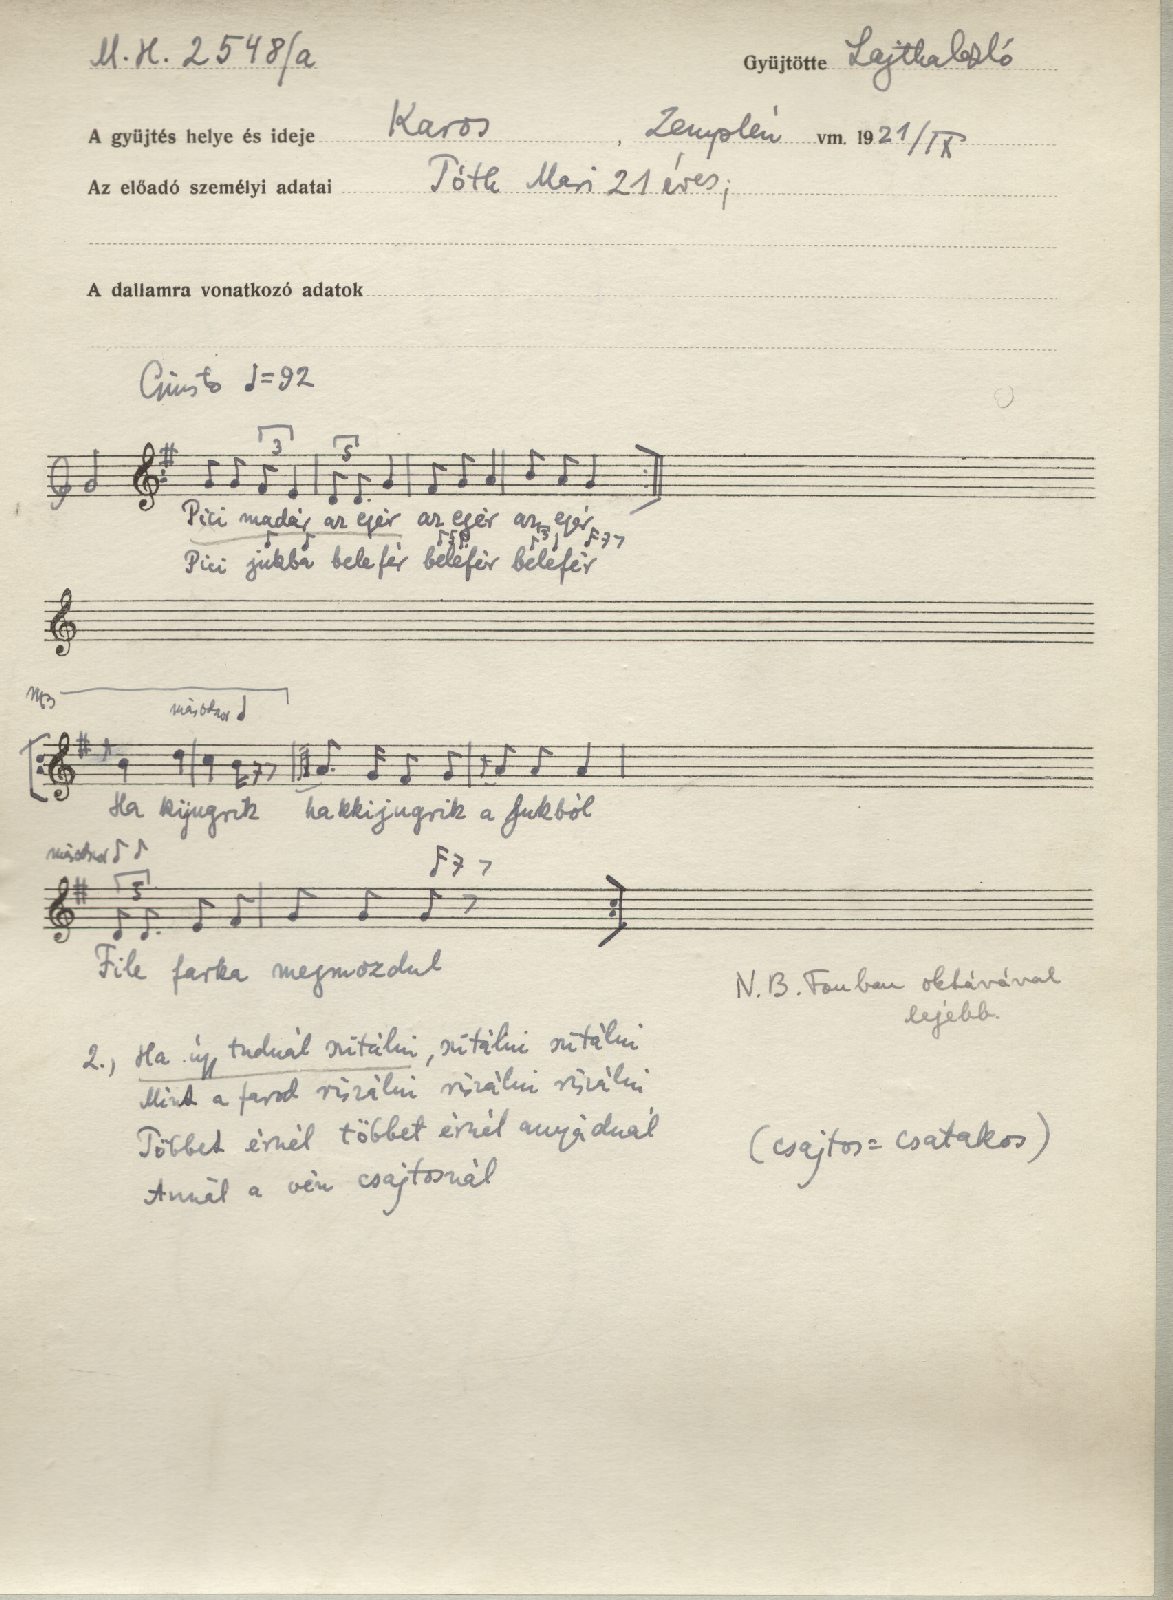 M.H. 2548/a
Gyüjtötte Lajtha László
A gyüjtés helye és ideje Karos, Zemplén vm. 1921/IX
Az előadó személyi adatai Tóth Mari 21 éves;
A dallamra vonatkozó adatok
Giusto ♩=92
3 5
Pici madár az egér az egér az egér
Pici jukba belefér belefér belefér
másodszor
Ha kijugrik hakkijugrik a jukból
másodszor
5
File farka megmozdul
N.B. Fonban oktávával
lejebb.
2., Ha úgy tudnál szitálni, szitálni szitálni
Mint a farod riszálni riszálni riszálni
Többet érnél többet érnél anyádnál
Annál a vén csajtosnál
(csajtos = csatakos)